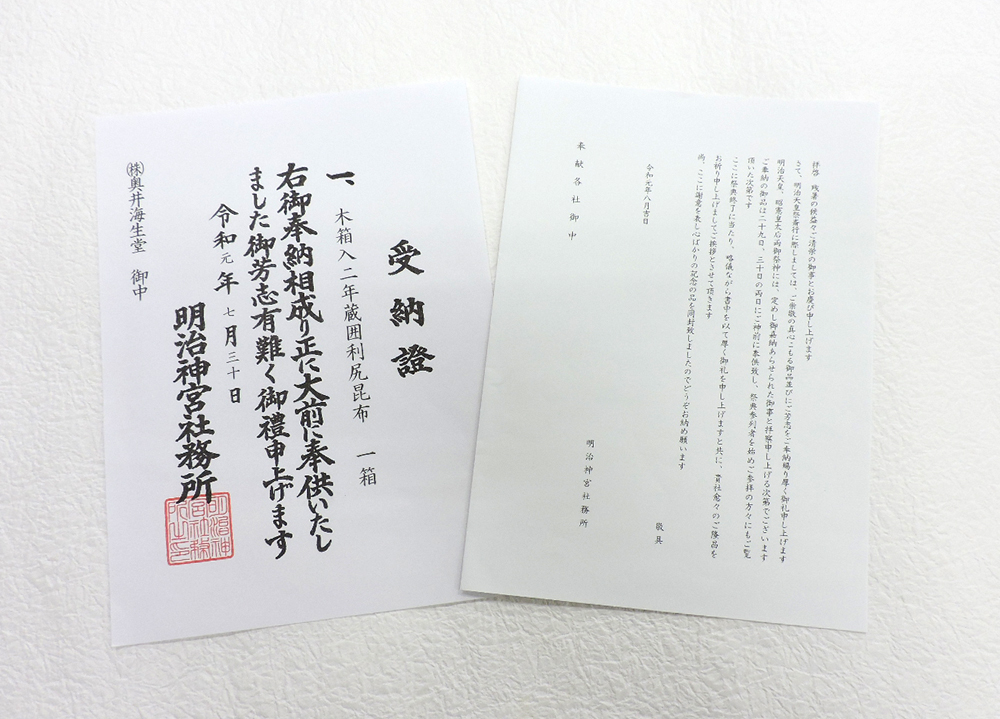 受納證
一、木箱入二年蔵囲利尻昆布　一箱
右御奉納相成り正に大前に奉供いたし
ました御芳志有難く御禮申上げます
令和元年七月三十日
明治神宮社務所
㈱奥井海生堂　御中
拝啓　残暑の候益々ご清栄の御事とお慶び申し上げます
さて、明治天皇祭斎行に際しましては、ご崇敬の真心こもる御品並びにご芳志をご奉納賜り厚く御礼申し上げます
明治天皇、昭憲皇太后両御祭神には、定めし御嘉納あらせられた御事と拝察申し上げる次第でございます
ご奉納の御品は二十九日、三十日の両日にご神前に奉供致し、祭典参列者を始めご参拝の方々にもご覧
頂いた次第です
ここに祭典終了に当たり、略儀ながら書中を以て厚く御礼を申し上げますと共に、貴社愈々のご隆昌を
お祈り申し上げましてご挨拶とさせて頂きます
尚、ここに謝意を表し心ばかりの記念の品を同封致しましたのでどうぞお納め願います
敬具
令和元年八月吉日
明治神宮社務所
奉献各社御中